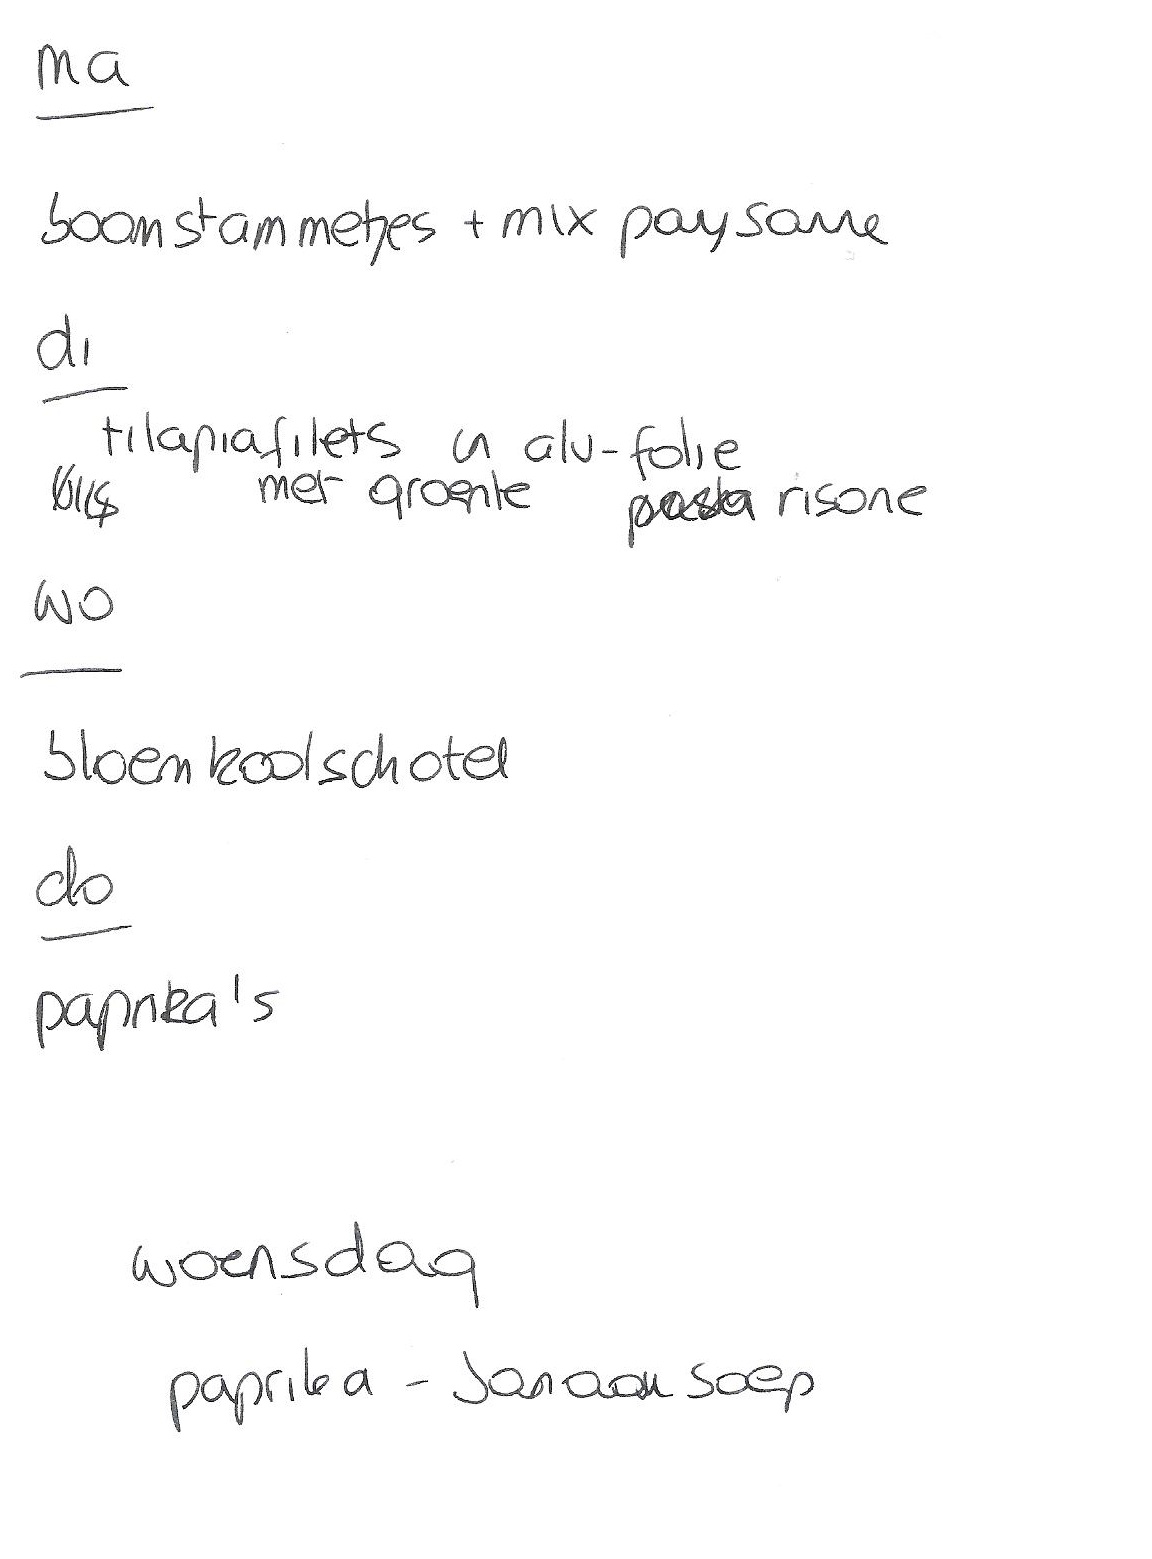 ma
boomstammetjes + mix paysanne
di
tilapiafilets in alu-folie
met groente pasta risone
wo
bloemkoolschotel
do
paprika's
woensdag
paprika - banaan soep